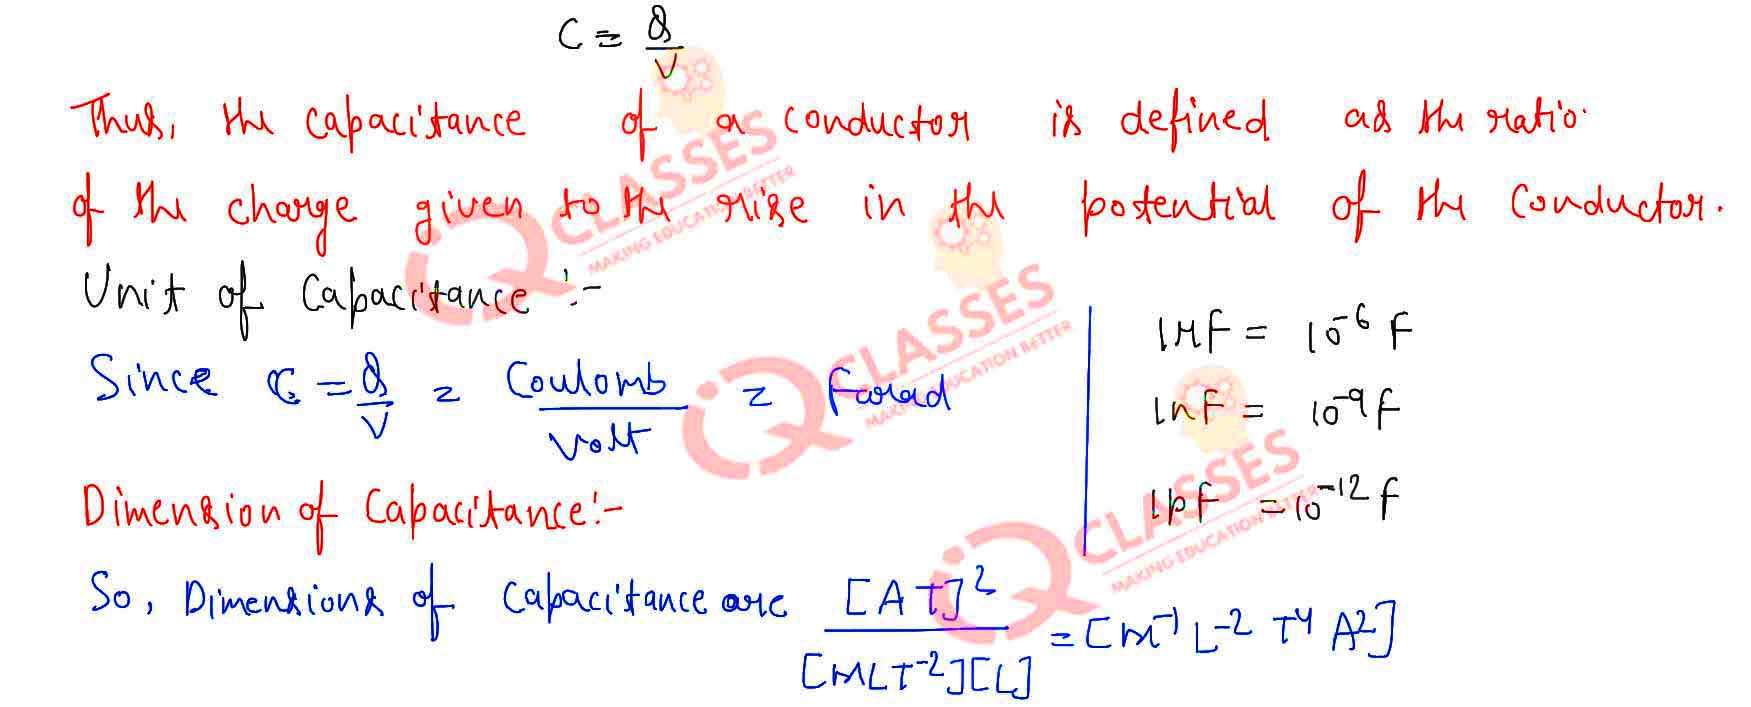 C = Q/V
Thus, the capacitance of a conductor is defined as the ratio.
of the charge given to the rise in the potential of the conductor.
Unit of Capacitance :-
Since C = Q/V = Coulomb/Volt = Farad
1μF = 10⁻⁶ F
1nF = 10⁻⁹ F
1pF = 10⁻¹² F
Dimension of Capacitance:-
So, Dimensions of capacitance are [AT]²/[MLT⁻²][L] = [M⁻¹ L⁻² T⁴ A²]
IQ CLASSES
MAKING EDUCATION BETTER
IQ CLASSES
MAKING EDUCATION BETTER
IQ CLASSES
MAKING EDUCATION BETTER